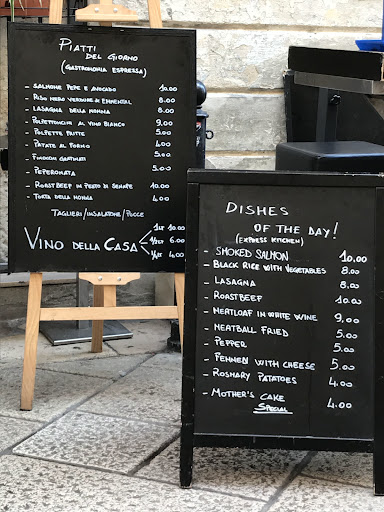 PIATTI
DEL GIORNO
(GASTRONOMIA ESPRESSA)
- SALMONE PEPE E AVOCADO 10.00
- RISO NERO VERDURE E EMMENTAL 8.00
- LASAGNA DELLA NONNA 8.00
- POLPETTONCINI AL VINO BIANCO 9.00
- POLPETTE FRITTE 5.00
- PATATE AL FORNO 4.00
- FINOCCHI GRATINATI 5.00
- PEPERONATA 5.00
- ROASTBEEF IN PESTO DI SENAPE 10.00
- TORTA DELLA NONNA 4.00
TAGLIERI/INSALATONE/PUCCE
VINO DELLA CASA
1LT 10.00
1/2LT 6.00
1/4LT 4.00
DISHES
OF THE DAY!
(EXPRESS KITCHEN)
- SMOKED SALMON 10.00
- BLACK RICE WITH VEGETABLES 8.00
- LASAGNA 8.00
- ROASTBEEF 10.00
- MEATLOAF IN WHITE WINE 9.00
- MEATBALL FRIED 5.00
- PEPPER 5.00
- FENNEL WITH CHEESE 5.00
- ROSMARY POTATOES 4.00
- MOTHER'S CAKE 4.00
SPECIAL